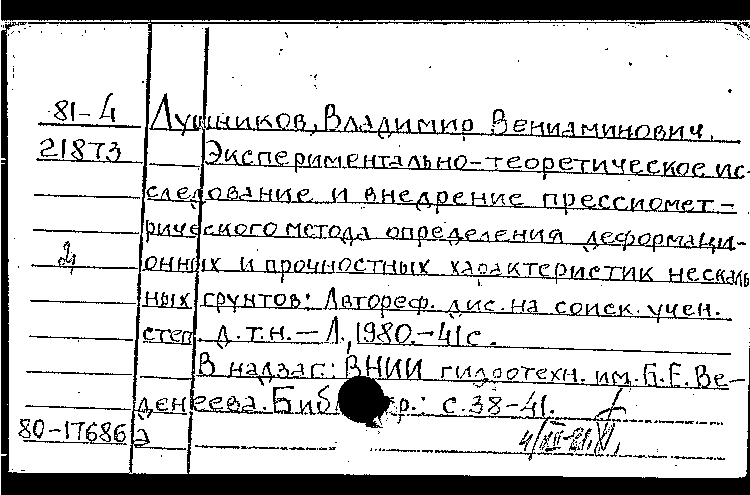 81-4 Лушников, Владимир Вениаминович.
21873 Экспериментально-теоретическое ис-
следование и внедрение прессиомет-
рического метода определения деформаци-
онных и прочностных характеристик нескаль
ных грунтов: Автореф. дис. на соиск. учен.
степ. д.т.н. – Л., 1980. – 41 с.
В надзаг.: ВНИИ гидротехн. им. Б.Е. Ве-
денеева. Библ гр.: с. 38-41.
80-17686